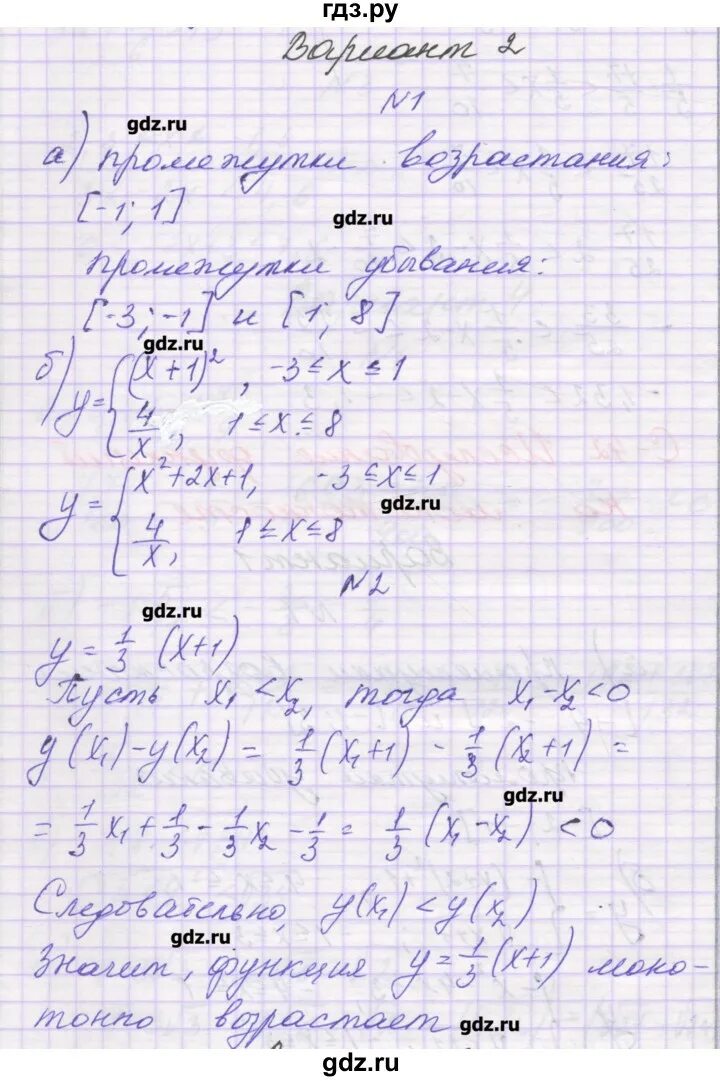 гдз.ру
Вариант 2
N1
gdz.ru
а) промежутки возрастания:
[-1; 1]
gdz.ru
промежутки убывания:
[-3; -1] и [1; 8]
gdz.ru
б) y = { (x+1)², -3 ≤ x ≤ 1
4/x, 1 ≤ x ≤ 8
y = { x²+2x+1, -3 ≤ x ≤ 1
gdz.ru
4/x, 1 ≤ x ≤ 8
N2
gdz.ru
y = 1/3 (x+1)
Пусть x₁ < x₂, тогда x₁ - x₂ < 0
y(x₁) - y(x₂) = 1/3 (x₁+1) - 1/3 (x₂+1) =
gdz.ru
= 1/3 x₁ + 1/3 - 1/3 x₂ - 1/3 = 1/3 (x₁ - x₂) < 0
Следовательно, y(x₁) < y(x₂)
gdz.ru
Значит, функция y = 1/3 (x+1) моно-
тонно возрастает
gdz.ru
gdz.ru